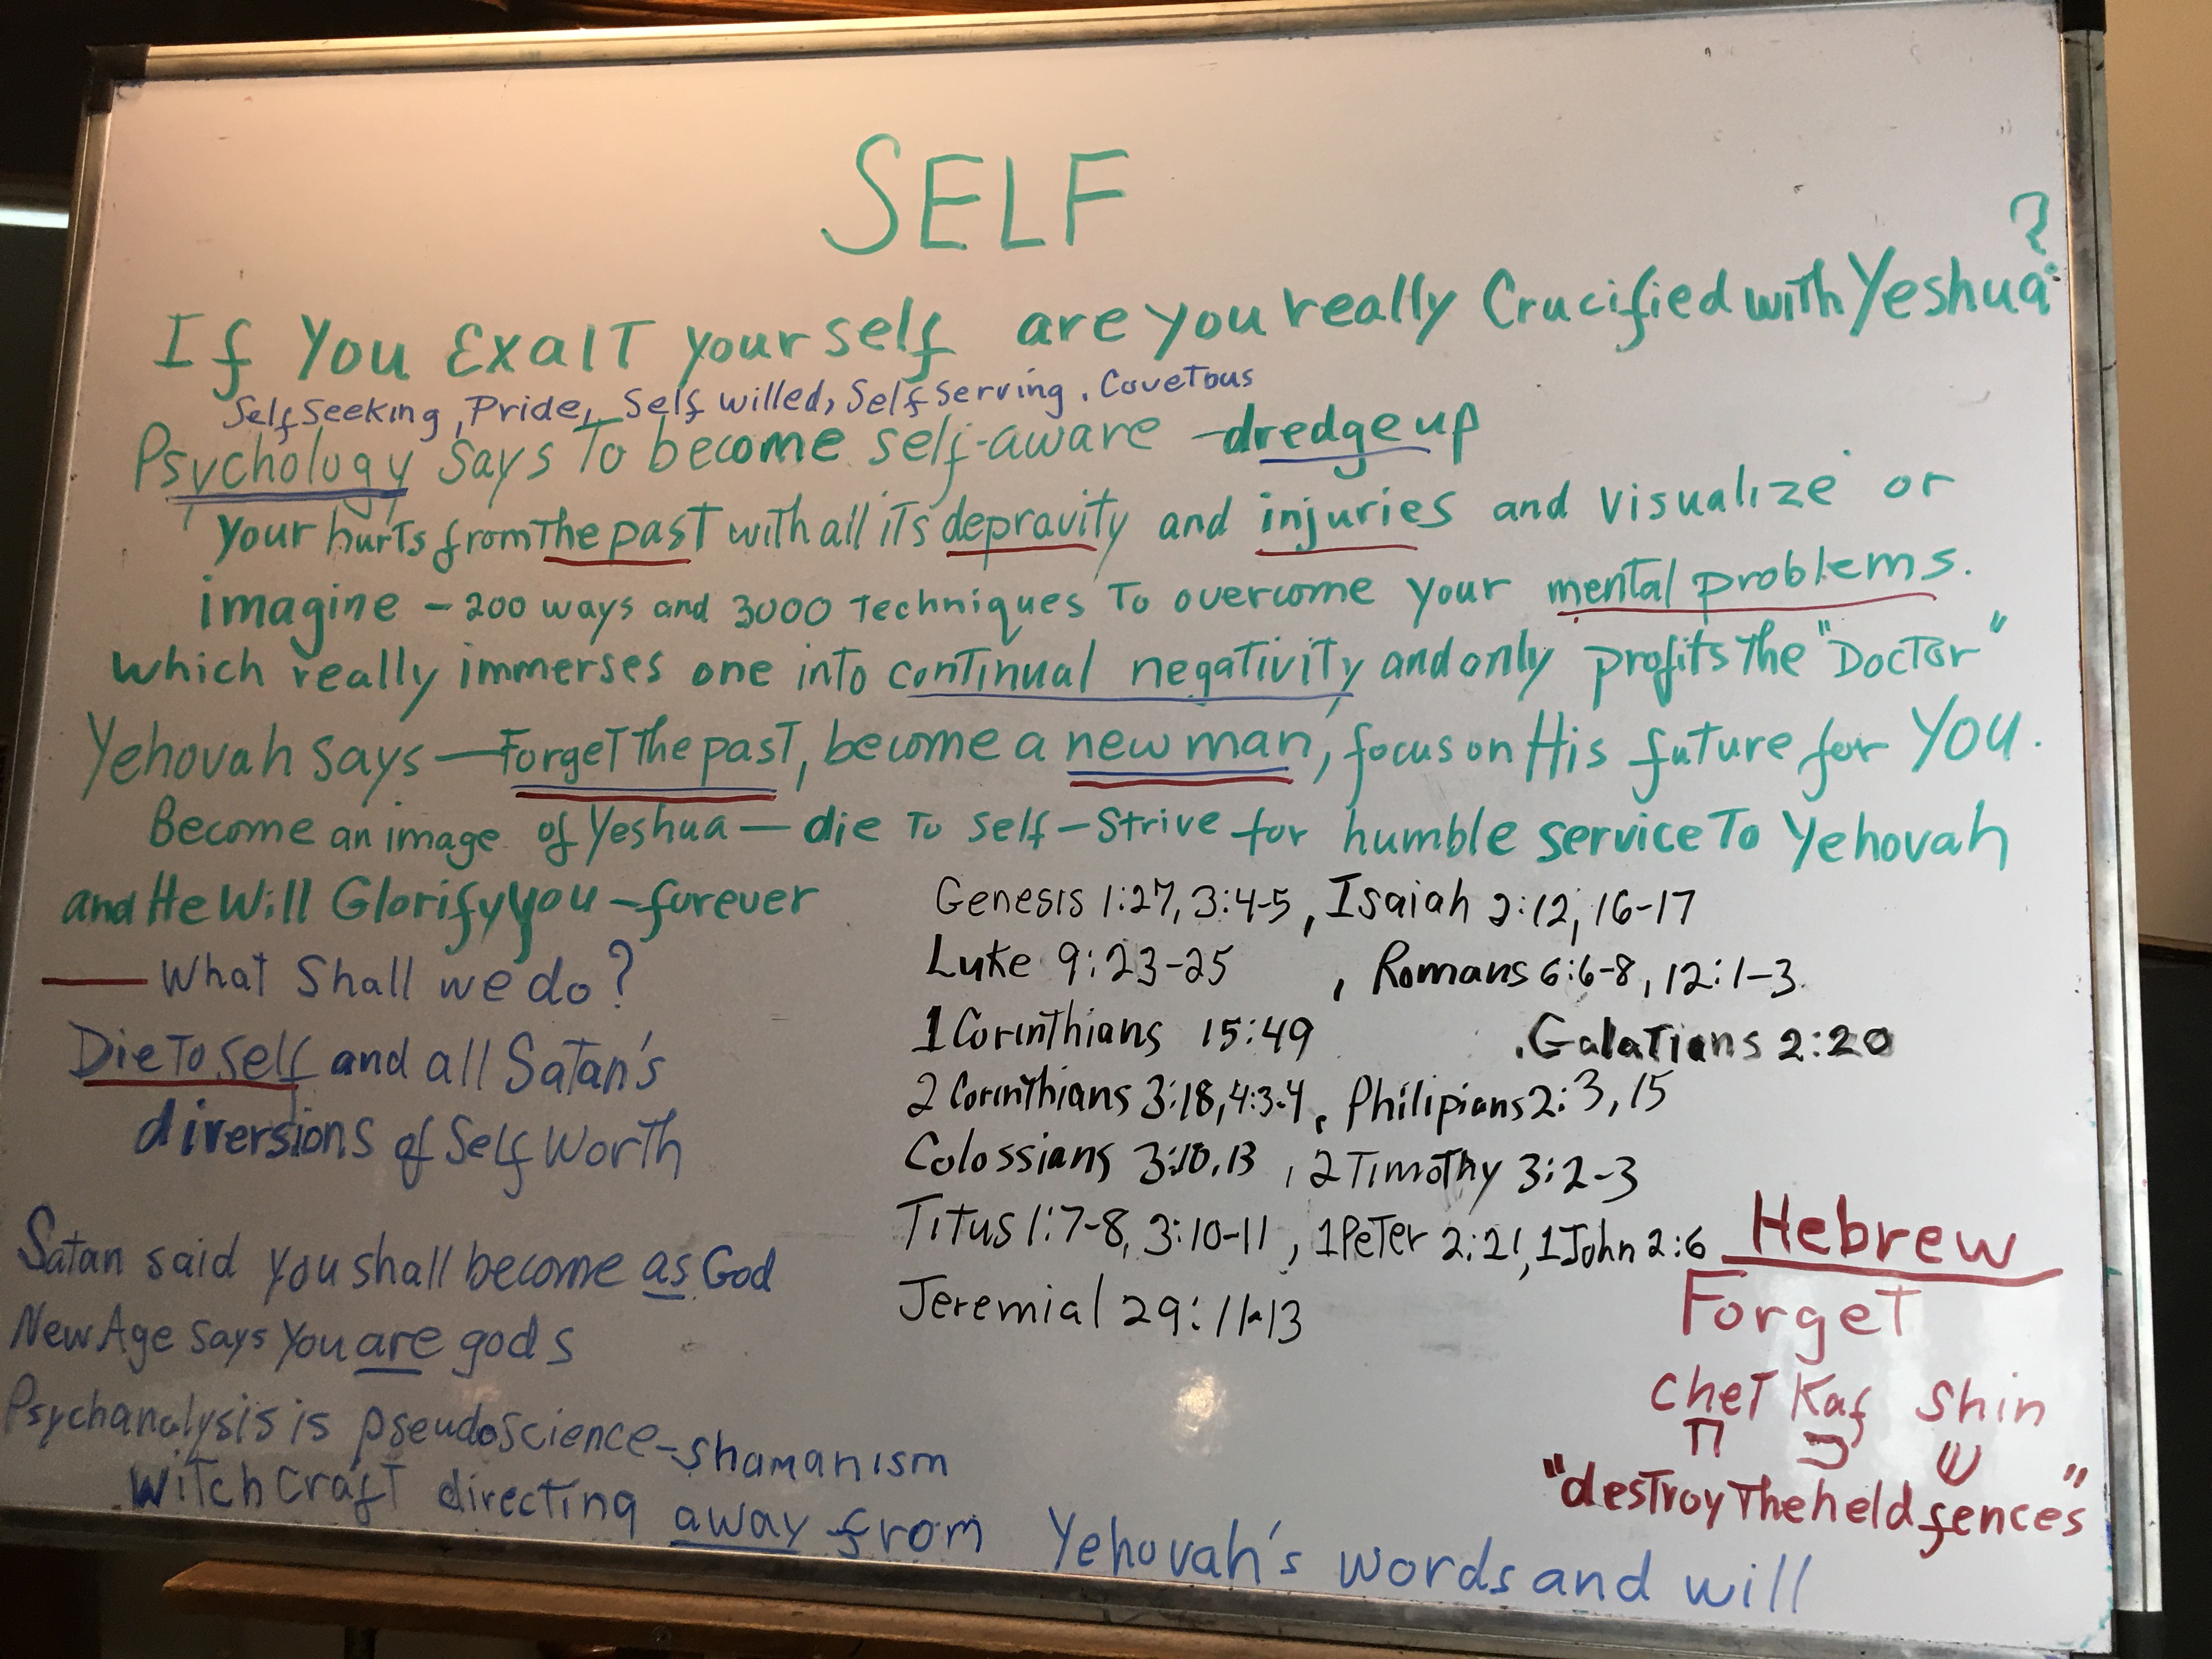 SELF
?
If You Exalt yourself are you really Crucified with Yeshua?
Self Seeking, Pride, Self willed, Self Serving, Covetous
Psychology Says To become self-aware - dredge up
your hurts from the past with all its depravity and injuries and visualize or
imagine - 200 ways and 3000 Techniques To overcome your mental problems.
which really immerses one into continual negativity and only profits the "Doctor"
Yehovah says - Forget the past, become a new man, focus on His future for You.
Become an image of Yeshua - die To self - Strive for humble service To Yehovah
and He Will Glorify you - forever
— What Shall we do?
Die To Self and all Satan's
diversions of Self Worth
Satan said you shall become as God
New Age Says You are gods
Psychanalysis is pseudoscience - shamanism
witch craft directing away from Yehovah's words and will
Genesis 1:27, 3:4-5, Isaiah 2:12, 16-17
Luke 9:23-25, Romans 6:6-8, 12:1-3
1 Corinthians 15:49, Galatians 2:20
2 Corinthians 3:18, 4:3-4, Philipians 2:3, 15
Colossians 3:10, 13, 2 Timothy 3:2-3
Titus 1:7-8, 3:10-11, 1 Peter 2:21, 1 John 2:6
Jeremial 29:11-13
Hebrew
Forget
Chet Kaf Shin
ח כ ש
"destroy the held fences"